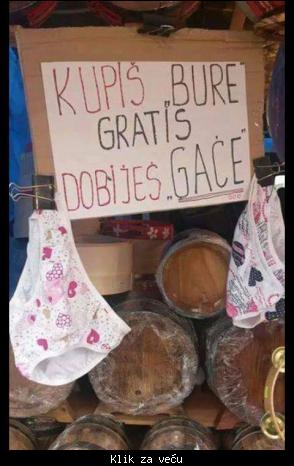 KUPIŠ „BURE"
GRATIS
DOBIJEŠ „GAĆE"
Klik za veću